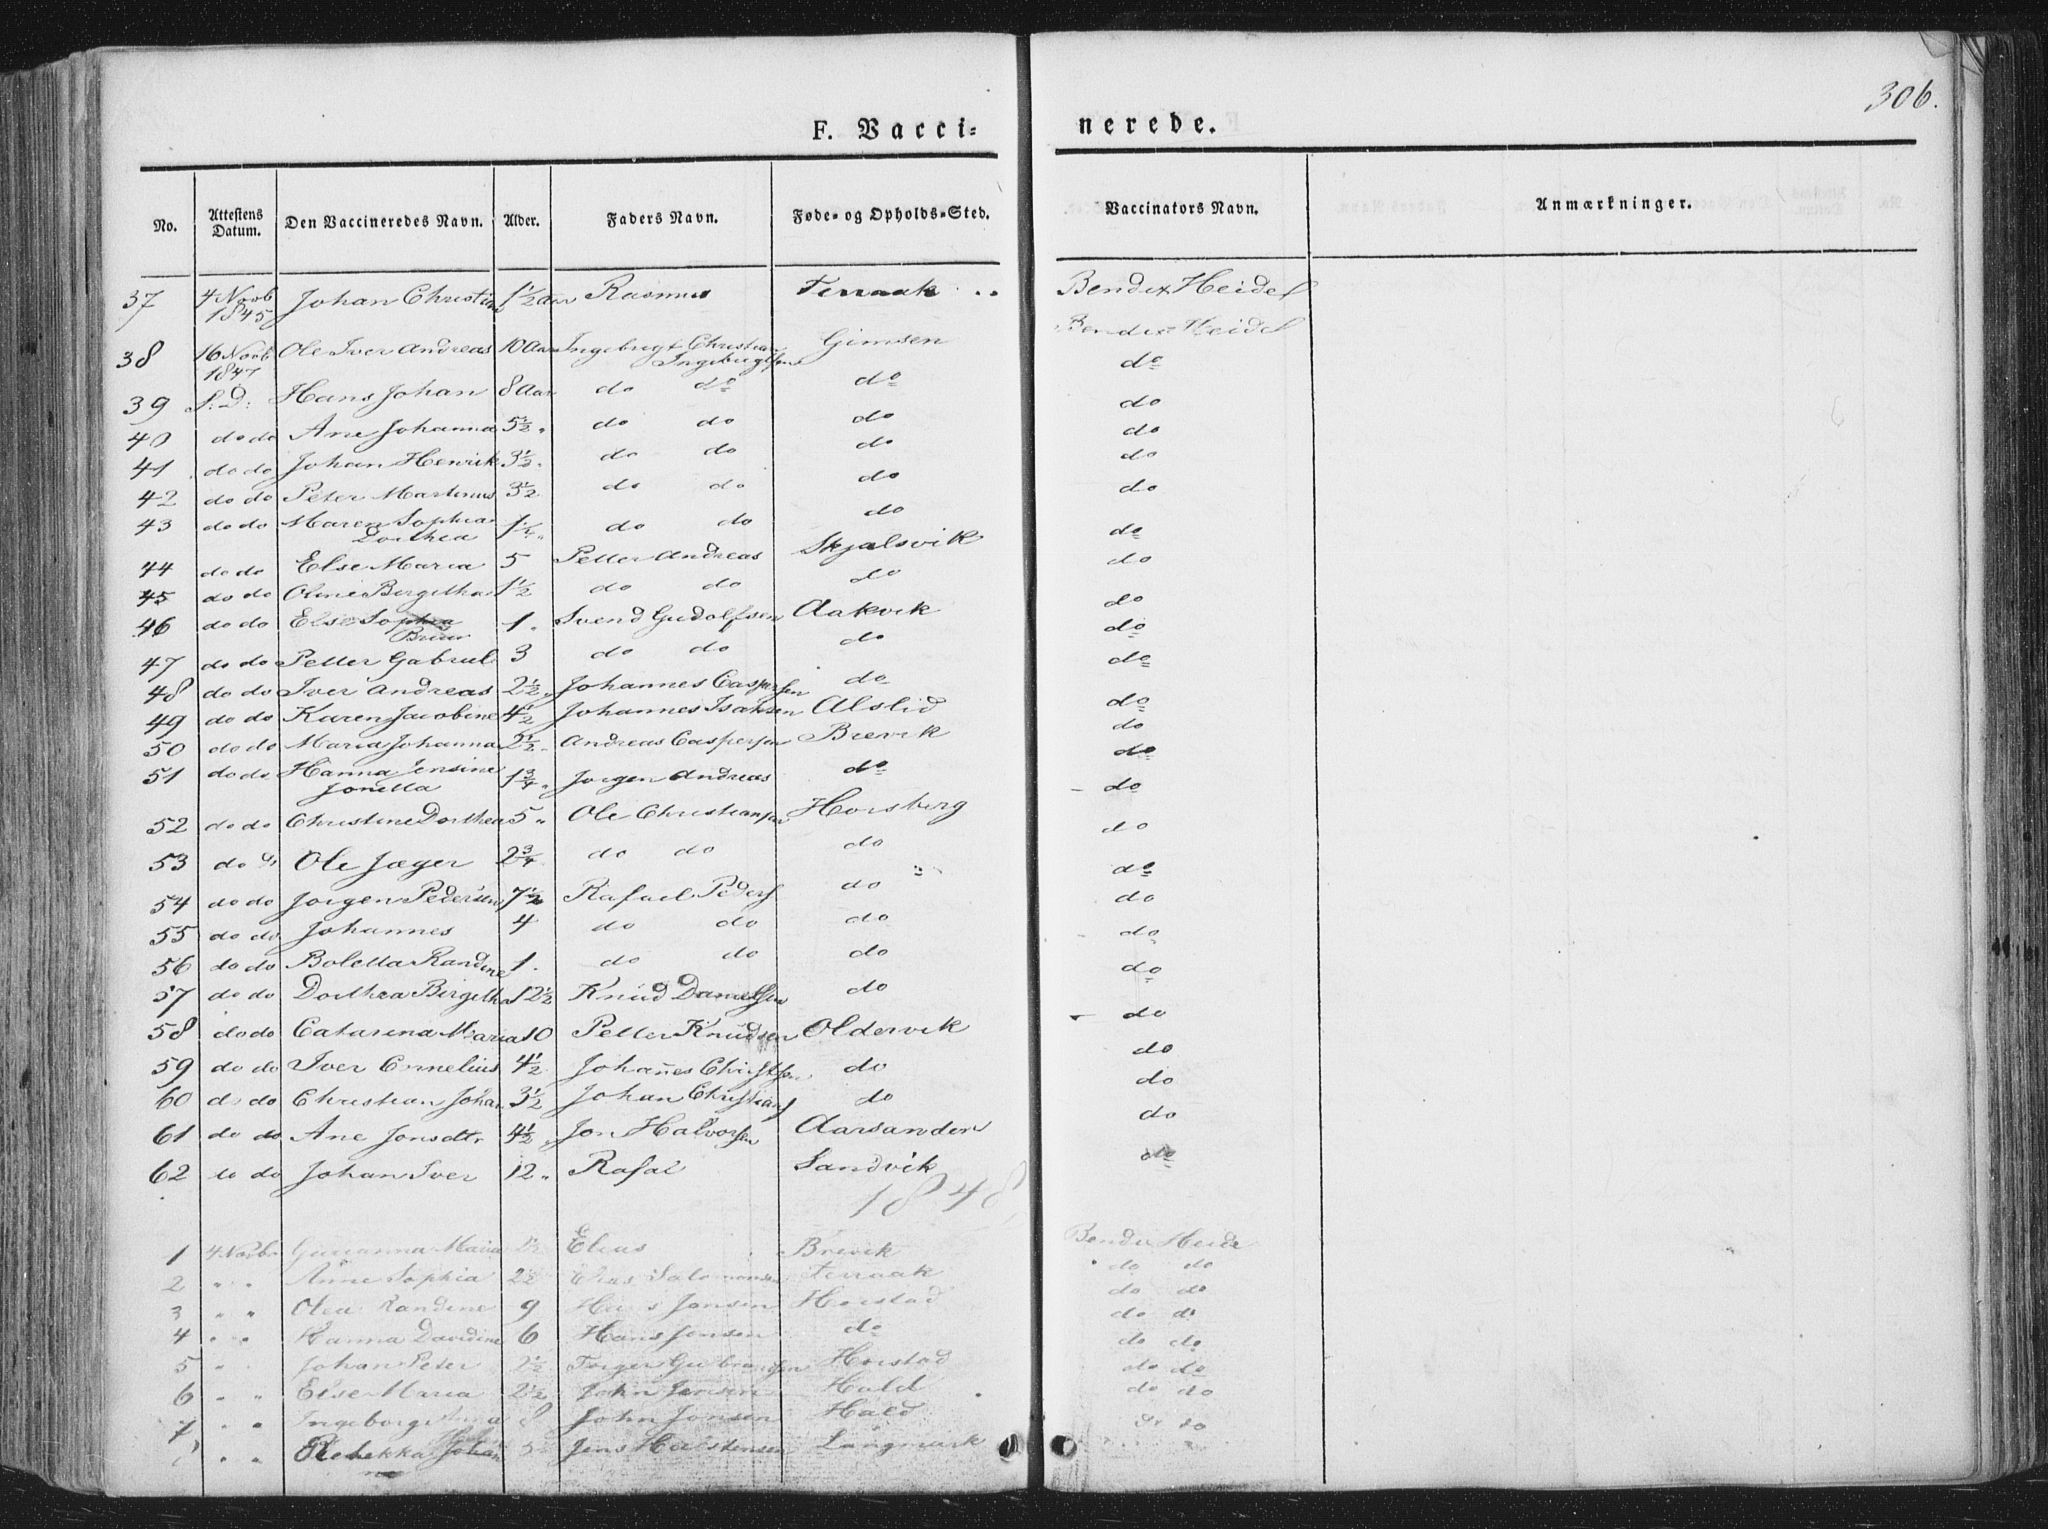 306.
F. Vacci=
nerede.
No. Attestens Datum. Den Vaccineredes Navn. Alder. Faders Navn. Føde- og Opholds-Sted. Vaccinators Navn. Anmærkninger.
37 4 Novb 1845 Johan Christian 1½ aar Rasmus Terraak Bendix Heidel
Bendix Heidel
38 16 Novb 1847 Ole Iver Andreas 10 Aar Ingebrigt Christian Ingebrigtsen Gimsen do
39 S: D: Hans Johan 8 Aar do do do do
40 do do Ane Johanna 5½ " do do do do
41 do do Johan Henrik 3½ " do do do do
42 do do Peter Martinus 3½ do do do do
43 do do Maren Sophia Dorthea 1½ " do do do do
44 do do Else Maria 5 Petter Andreas Skjelsvik do
45 do do Oline Bergitha 1½ do do do do
46 do do Else Sophia 1 " Svend Gudolfsen Aakvik do
47 do do Petter Gabriel 3 do do do do
48 do do Iver Andreas 2½ " Johannes Caspersen do do
49 do do Karen Jacobine 4½ Johannes Isaksen Alslid do
50 do do Maria Johanna 2½ " Andreas Caspersen Brevik do
51 do do Hanna Jensine Jonetta 1¾ " Jørgen Andreas do do
52 do do Christine Dorthea 5 " Ole Christiansen Horsberg do
53 do do Ole Jæger 2¾ do do do do
54 do do Jørgen Pedersen 7½ Rafael Peders do do
55 do do Johannes 4 do do do do
56 do do Boletta Randine 1 " do do do do
57 do do Dorthea Birgitha 12½ Knud Danielsen do do
58 do do Catarina Maria 10 Petter Knudsen Oldervik do
59 do do Iver Cornelius 4½ Johañes Christsen do do
60 do do Christian Johan 3½ Johan Christians do do
61 do do Ane Jonsdtr 4½ " Jon Halvorsen Aarsander do
62 do do Johan Iver 12 " Rafal Sandvik do
1848
1 4 Novbr Maria 2½ Elias Brevik Bendix Heide
2 " " Anne Sophia 2½ Elias Salomonsen Terraak do do
3 " " Olea Randine 9 Hans Jensen Horstad do do
4 " " Hanna Davidine 6 Hans Jensen do do do
5 " " Johan Peter 2½ Torger Gulbrandsen Horstad do do
6 " " Else Maria 2½ John Jensen Hald do do
7 " " Ingeborg Anna 8 John Jonsen Hald do do
" " Rebekka Johan Jens Langmark